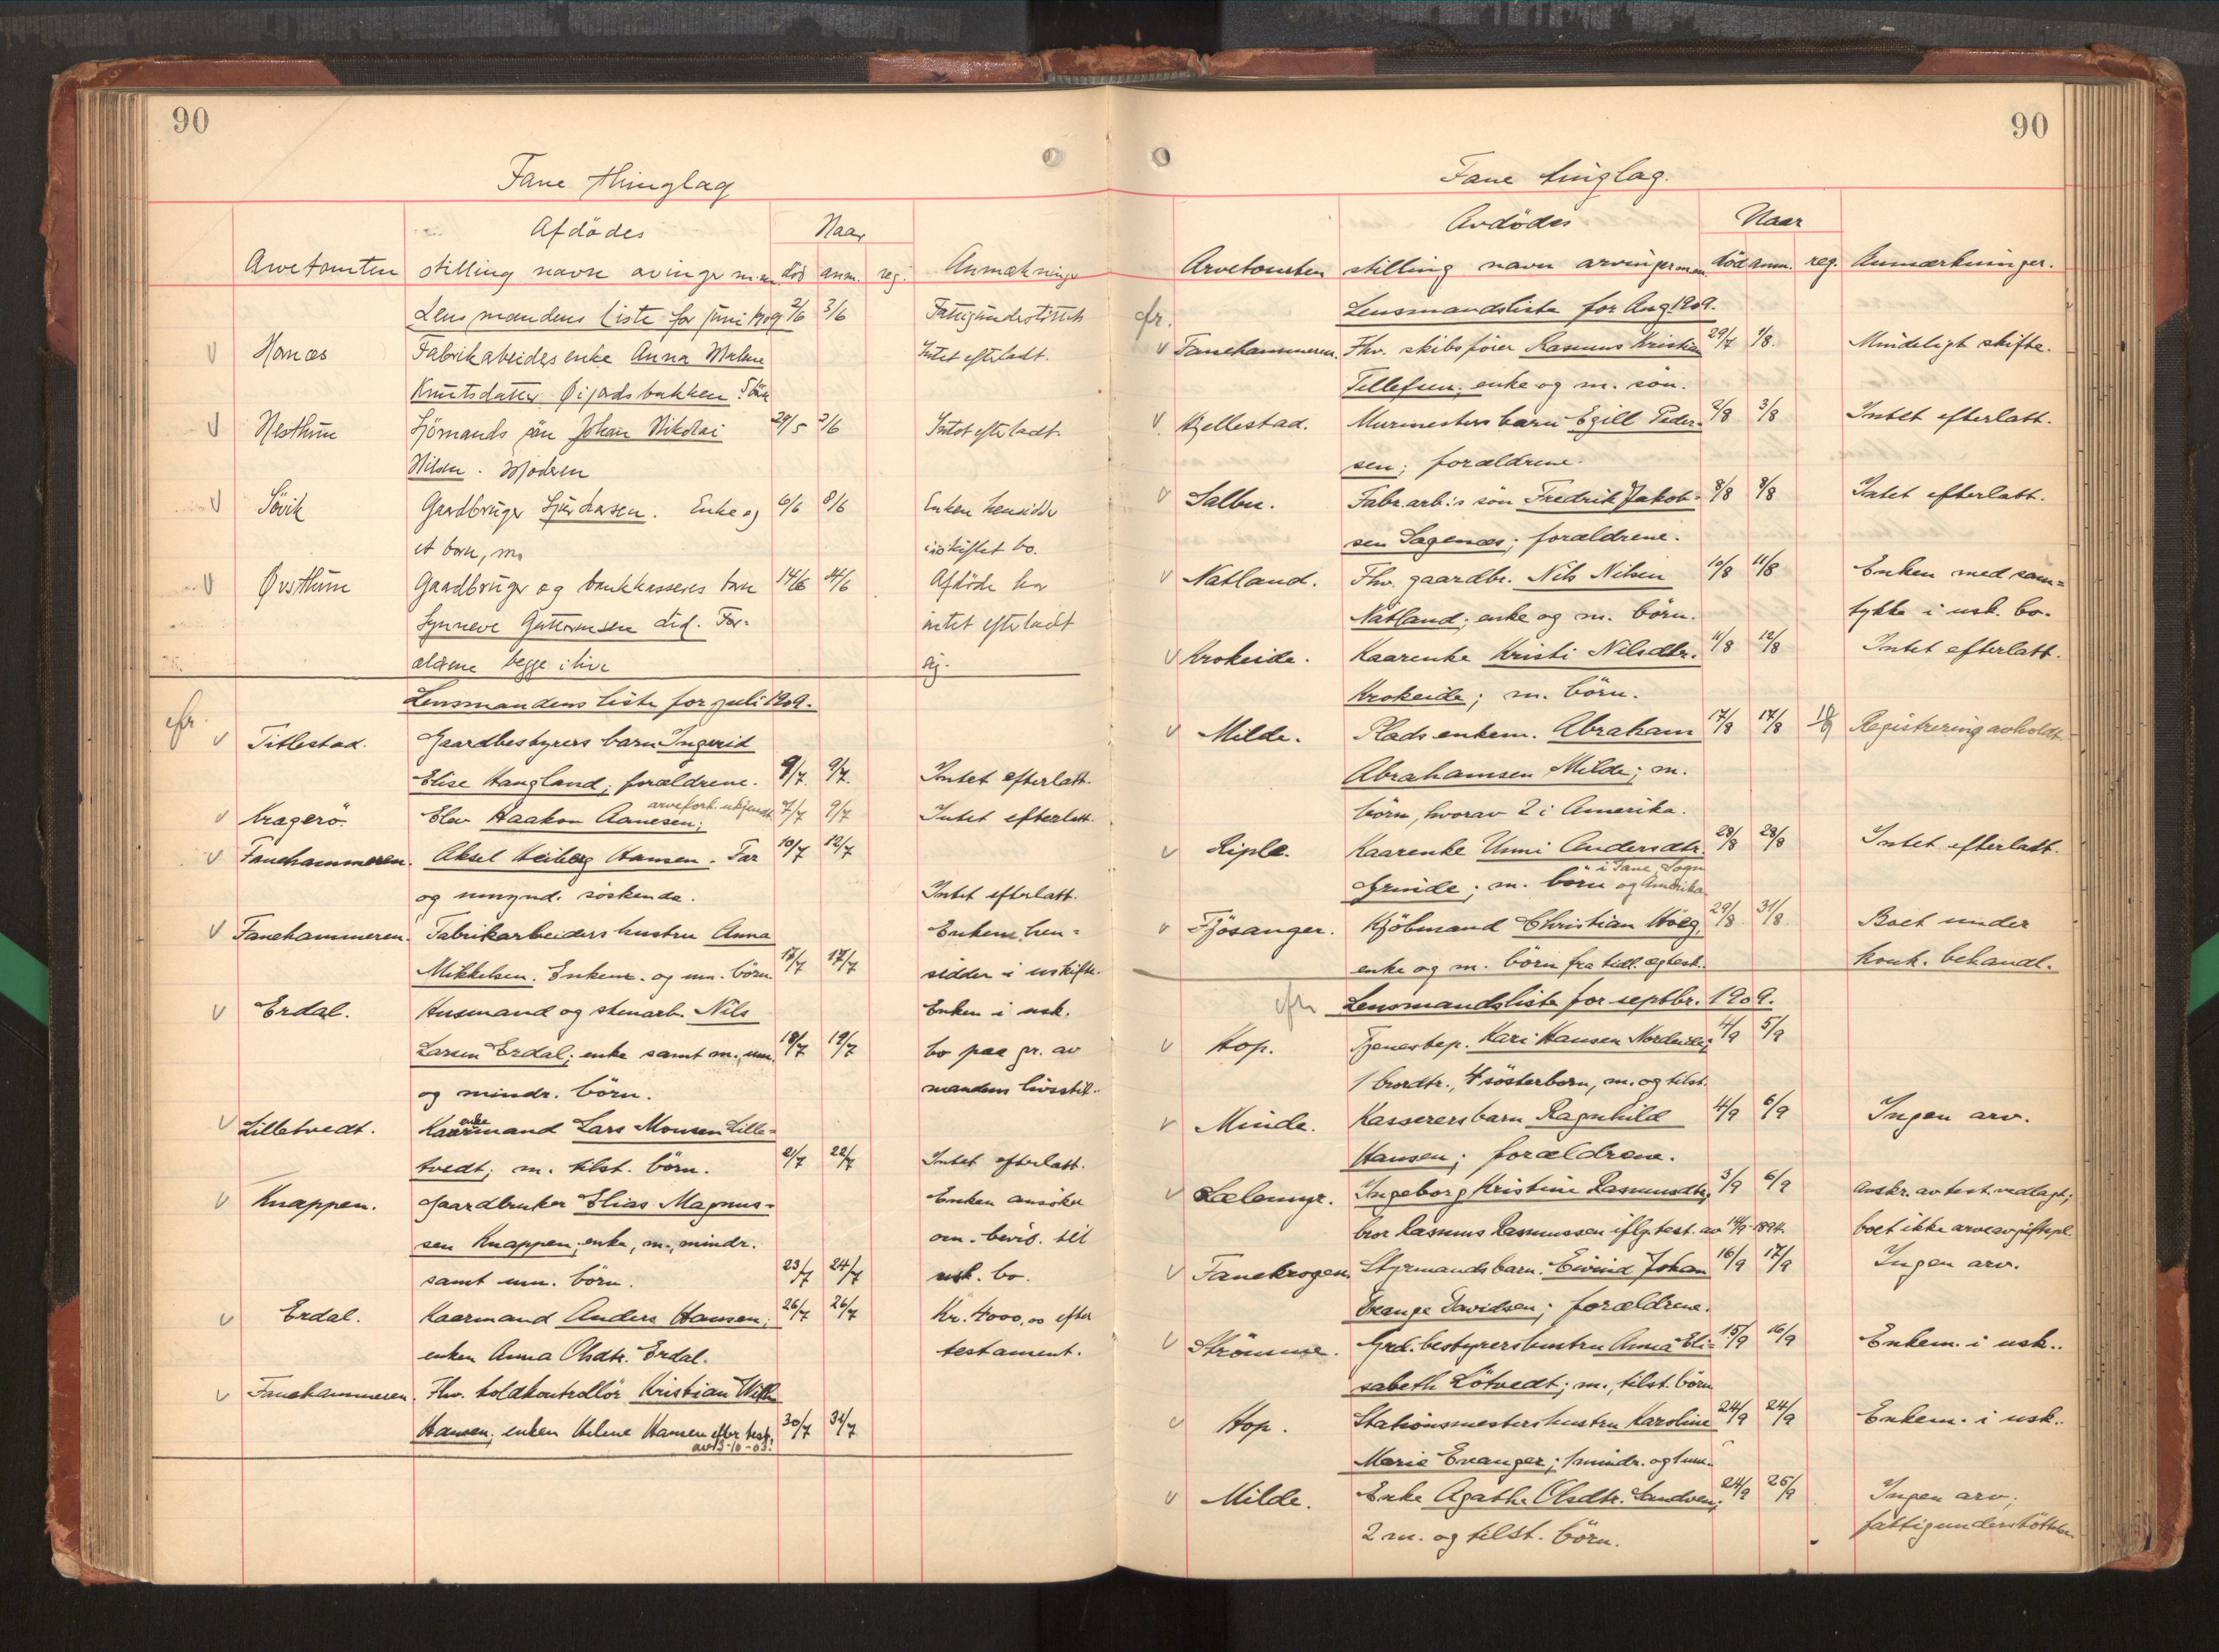 90
Fane thinglag
Afdødes
Naar
Arvetomten stilling navn arvinger m.m. död anm. reg. Anmærkninger
Lensmandens liste for juni 1909 2/6 3/6 Fattigunderstöttet
V Hornæs Fabrikabeiders enke Anna Malene Intet efterladt.
Knutsdatter Øijordsbakken.
V Nesthun Sjömands sön Johan Nikolai 29/5 2/6 Intet efterladt
Nilsen. Moderen
V Søvik Gaardbruger Sjur Larsen. Enke og 6/6 8/6 Enken hensidder
et barn, m. i uskiftet bo.
V Øvsthun Gaardbruger og bankkasseres barn 14/6 14/6 Afdöde har
Synneve Guttormsen did. For- intet efterladt
ældrene begge i live sig.
Lensmandens liste for juli 1909.
cfr.
V Titlestad. Gaardbestyrers barn Ingerid
Elise Haugland; forældrene. 9/7 9/7. Intet efterlatt.
V Kragerö. Elev Haakon Aanesen; arvefort. ukjendt 7/7 9/7 Intet efterlatt.
V Fanehammeren. Aksel Heiberg Hansen. Far 10/7 12/7
og umynd. söskende. Intet efterlatt.
V Fanehammeren. Fabrikarbeiders hustru Anna Enkem. hen=
Mikkelsen. Enkem. og um. börn. 17/7 sidder i uskifte.
V Erdal. Husmand og stenarb. Nils Enken i usk.
Larsen Erdal; enke samt m., um. 18/7 19/7 bo paa gr. av
og mindr. börn. mandens livsstil..
V Lilletvedt. Kaarmand enke Lars Monsen Lille=
tvedt; m. tilst. börn. 21/7 22/7 Intet efterlatt.
V Knappen. Gaardbruker Elias Magnus= Enken ansöker
sen Knappen; enke, m., mindr. om. bevis. til
samt um. börn. 23/7 24/7 usk. bo.
V Erdal. Kaarmand Anders Hansen; 26/7 26/7 Kr. 4000,00 efter
enken Anna Olsdtr. Erdal. testament.
V Fanehammeren. Fhv. toldkontrollör Kristian With
Hansen; enken Helene Hansen efter test. 30/7 31/7
av 13-10-03.
90
Fane tinglag.
Avdödes
Naar
Arvetomten stilling navn arvinger m.m. död anm. reg. Anmærkninger.
cfr. Lensmandsliste for Aug. 1909.
V Fanehammeren. Fhv. skibsförer Rasmus Kristian 29/7 1/8 Mindeligt skifte.
Tellefsen; enke og m. sön.
V Kjellestad. Murmesters barn Egill Peder= 2/8 3/8 Intet efterlatt.
sen; forældrene.
V Salbu. Fabr.arb.'s sön Fredrik Jakob= 8/8 8/8 Intet efterlatt.
sen Sagenæs; forældrene.
V Natland. Fhv. gaardbr. Nils Nilsen 10/8 11/8 Enken med sam=
Natland; enke og m. börn. tykke i usk. bo.
V Krokeide. Kaarenke Kristi Nilsdtr. 11/8 12/8 Intet efterlatt.
Krokeide; m. börn.
V Milde. Plads enkem. Abraham 17/8 17/8 Registrering avholdt
Abrahamsen Milde; m.
börn, hvorav 2 i Amerika.
V Riple. Kaarenke Unni Andersdtr. 28/8 28/8 Intet efterlatt.
Grinde; m. börn i Fane, Sogn og Amerika
V Fjösanger. Kjöbmand Christian Höeg, 29/8 31/8 Boet under
enke og m. börn fra tidl. egtesk. konk. behandl.
cfr Lensmandsliste for septbr. 1909.
V Hop. Tjenestep. Kari Hansen Nordvik; 4/9 5/9
1 brordtr., 4 sösterbörn, m. og tilst.
V Minde. Kasserers barn Ragnhild 4/9 6/9 Ingen arv.
Hansen; forældrene.
V Sælemyr. Ingeborg Kristine Rasmusdtr; 3/9 6/9 Avskr. av test. vedlagt;
bror Rasmus Rasmussen iflg. test. av 14/9-1894. boet ikke arveavgiftspl.
V Fanekrogen. Styrmands barn. Eivind Johan 16/9 17/9 Ingen arv.
Evange Davidsen; forældrene.
V Strömme. Grd.bestyrers hustru Anna Eli= 15/9 16/9 Enkem. i usk..
sabeth Lötvedt; m., tilst. börn
V Hop. Stationsmesters hustru Karoline 24/9 24/9 Enkem. i usk..
Marie Evanger; 1 mindr. og 1 um.
V Milde. Enke Agathe Olsdtr. Sandven; 24/9 25/9 Ingen arv;
2 m. og tilst. börn. fattigunderstöttet.